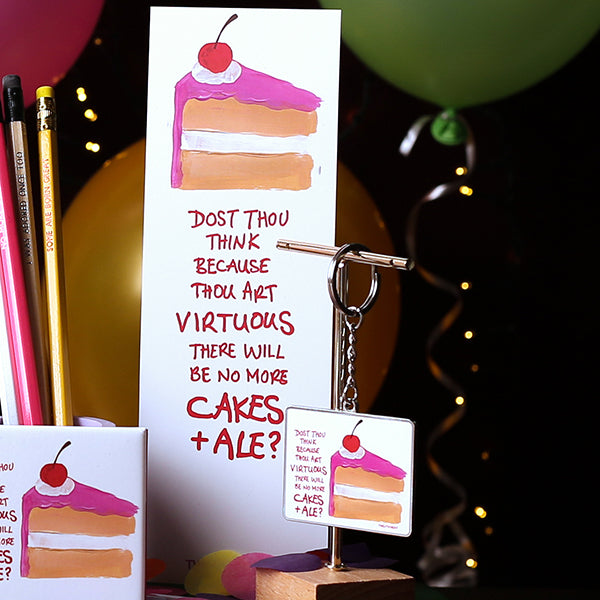 I WAS ADORED ONCE TOO
SOME ARE BORN GREAT
DOST THOU
THINK
BECAUSE
THOU ART
VIRTUOUS
THERE WILL
BE NO MORE
CAKES
+ ALE?
DOST THOU
THINK
BECAUSE
THOU ART
VIRTUOUS
THERE WILL
BE NO MORE
CAKES
+ ALE?